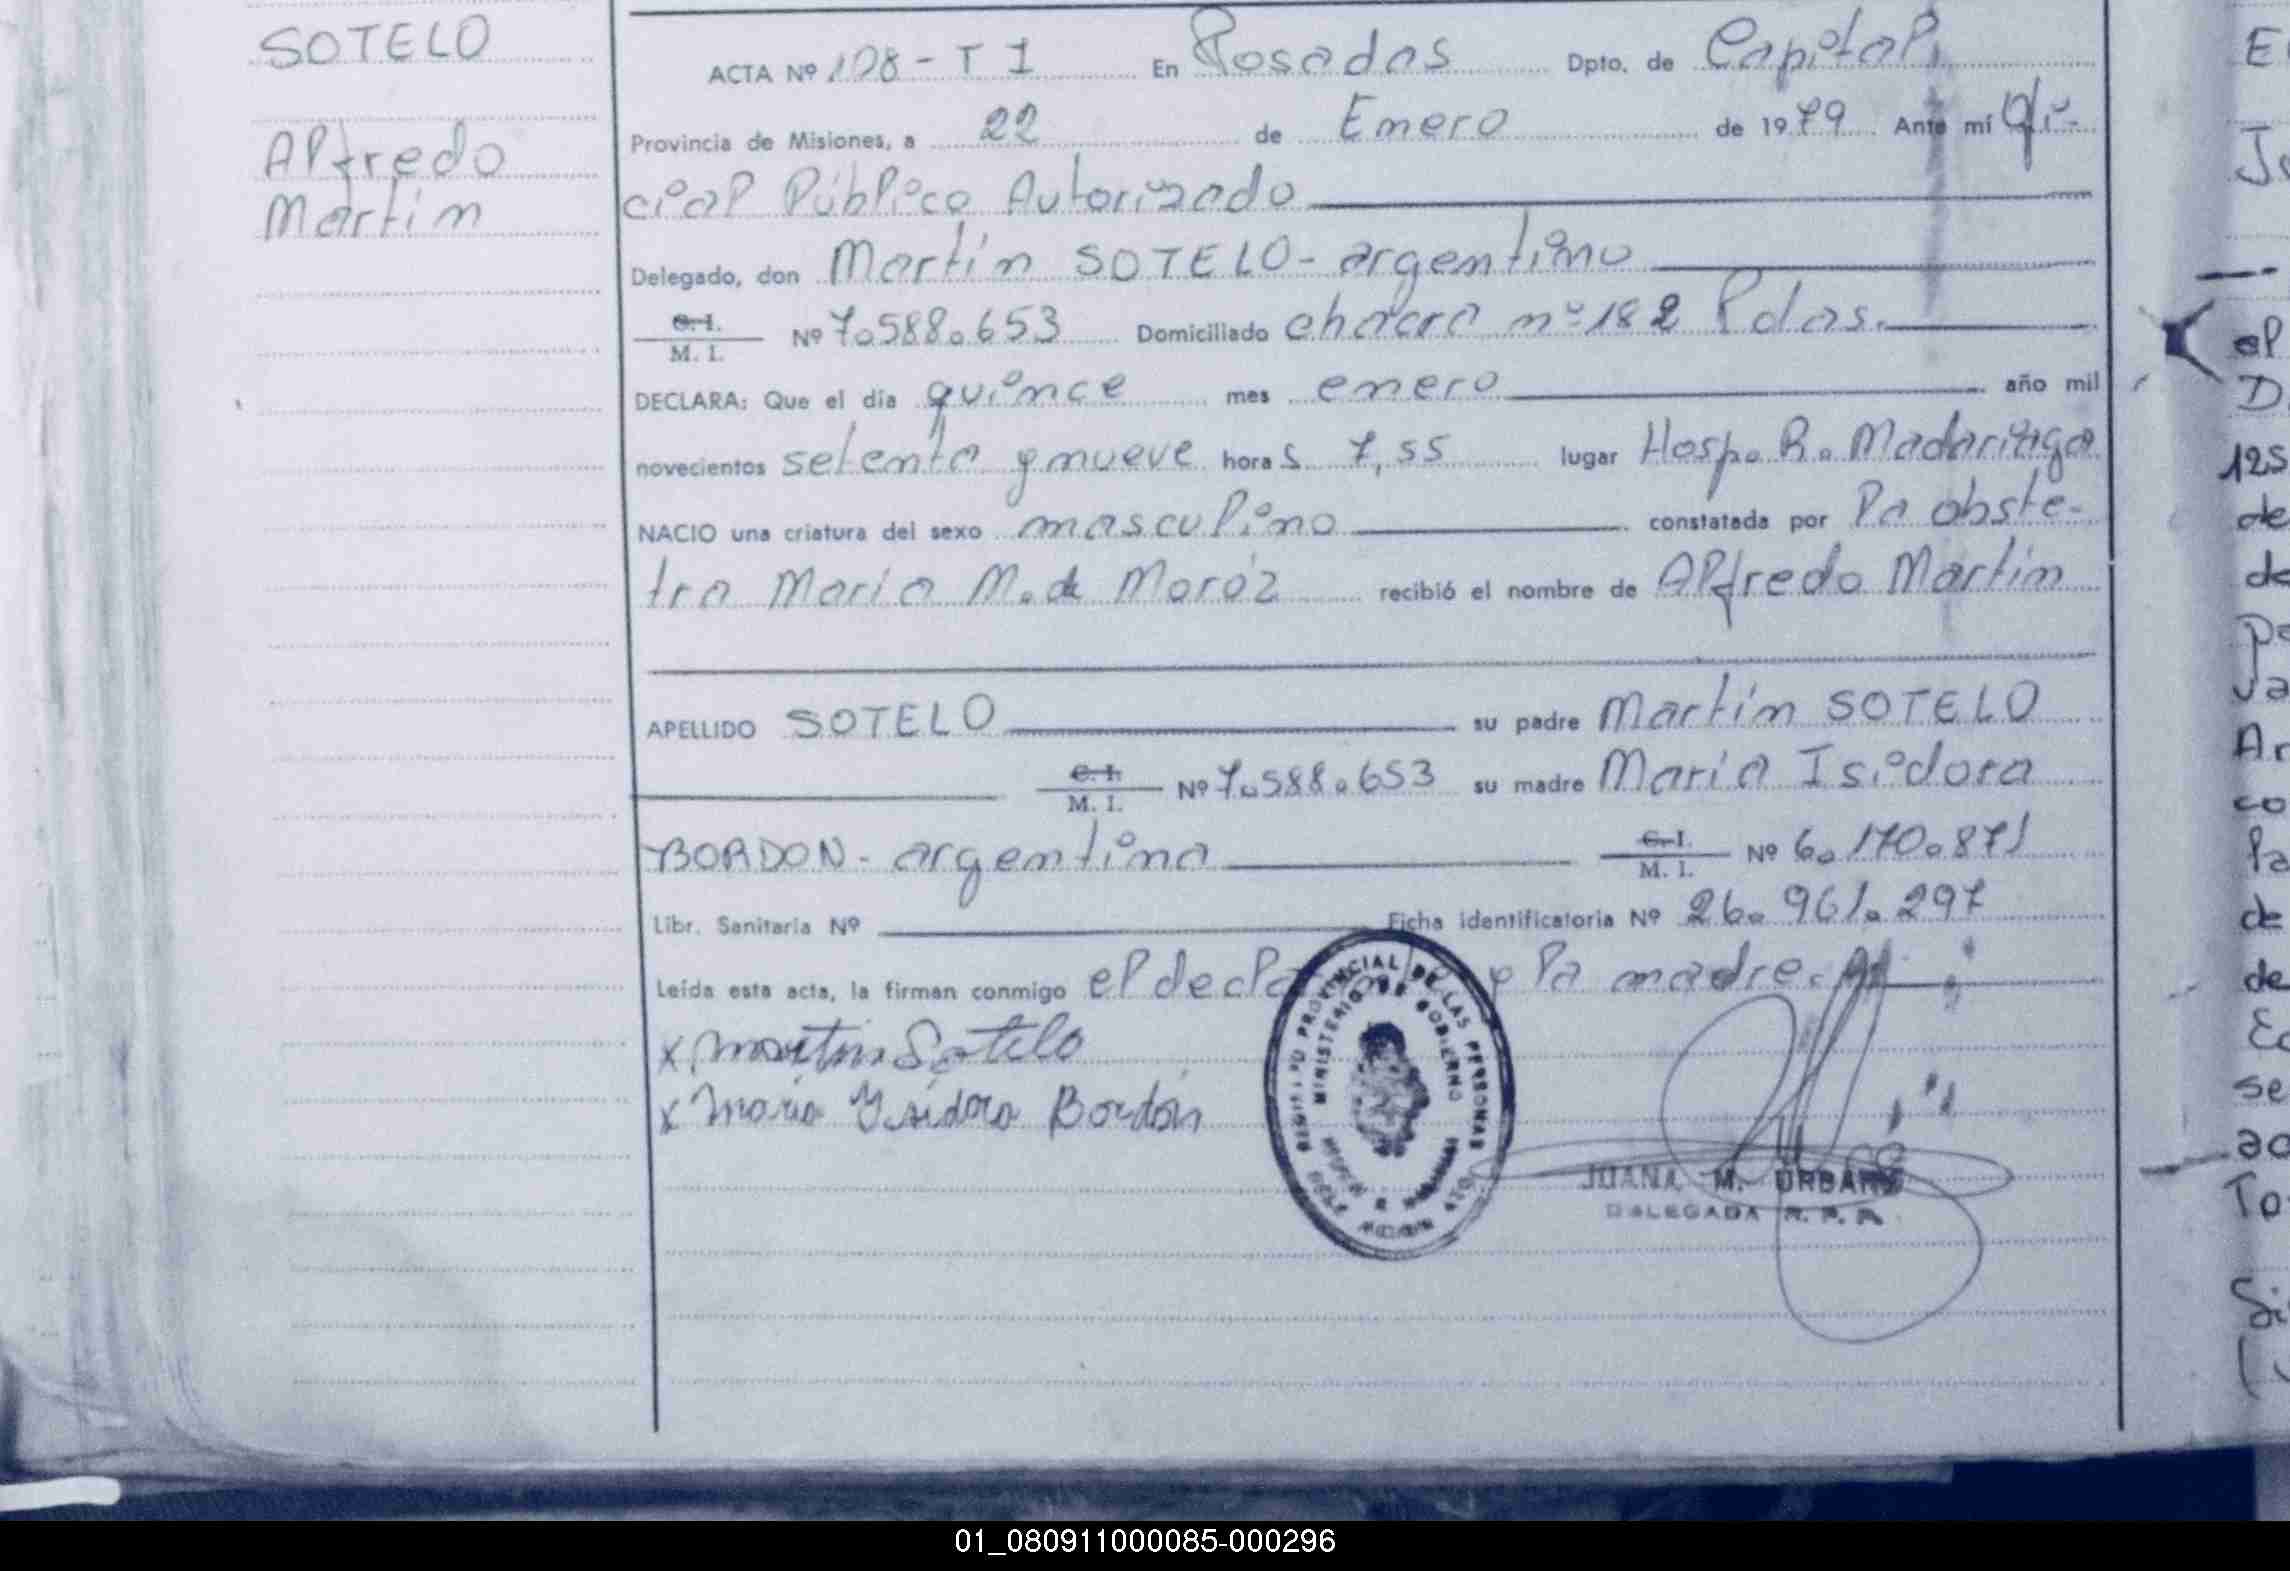 SOTELO
Alfredo
Martin
ACTA Nº 108 - T I En Posadas Dpto. de Capital,
Provincia de Misiones, a 22 de Enero de 1979 Ante mí Ofi-
cial Público Autorizado
Delegado, don Martín SOTELO - argentino
C. I. M. I. Nº 7.588.653 Domiciliado chacra nº 182 Pdas.
DECLARA: Que el día quince mes enero año mil
novecientos setenta y nueve horas 7,55 lugar Hosp. R. Madariaga
NACIO una criatura del sexo masculino constatada por la obste-
tra Maria M. de Moróz recibió el nombre de Alfredo Martin
APELLIDO SOTELO su padre Martín SOTELO
C. I. M. I. Nº 7.588.653 su madre Maria Isidora
BORDON - argentina C. I. M. I. Nº 6.170.871
Libr. Sanitaria Nº Ficha identificatoria Nº 26.961.297
Leída esta acta, la firman conmigo el y la madre.
x Martin Sotelo
x Maria Ysidora Bordón
PROVINCIAL DE LAS PERSONAS
MINISTERIO DE GOBIERNO
JUANA M.
DELEGADA R. P. P.
El
el
D.
125
de
de
va
Ar
co
la
de
de
se
ao
To
01_080911000085-000296